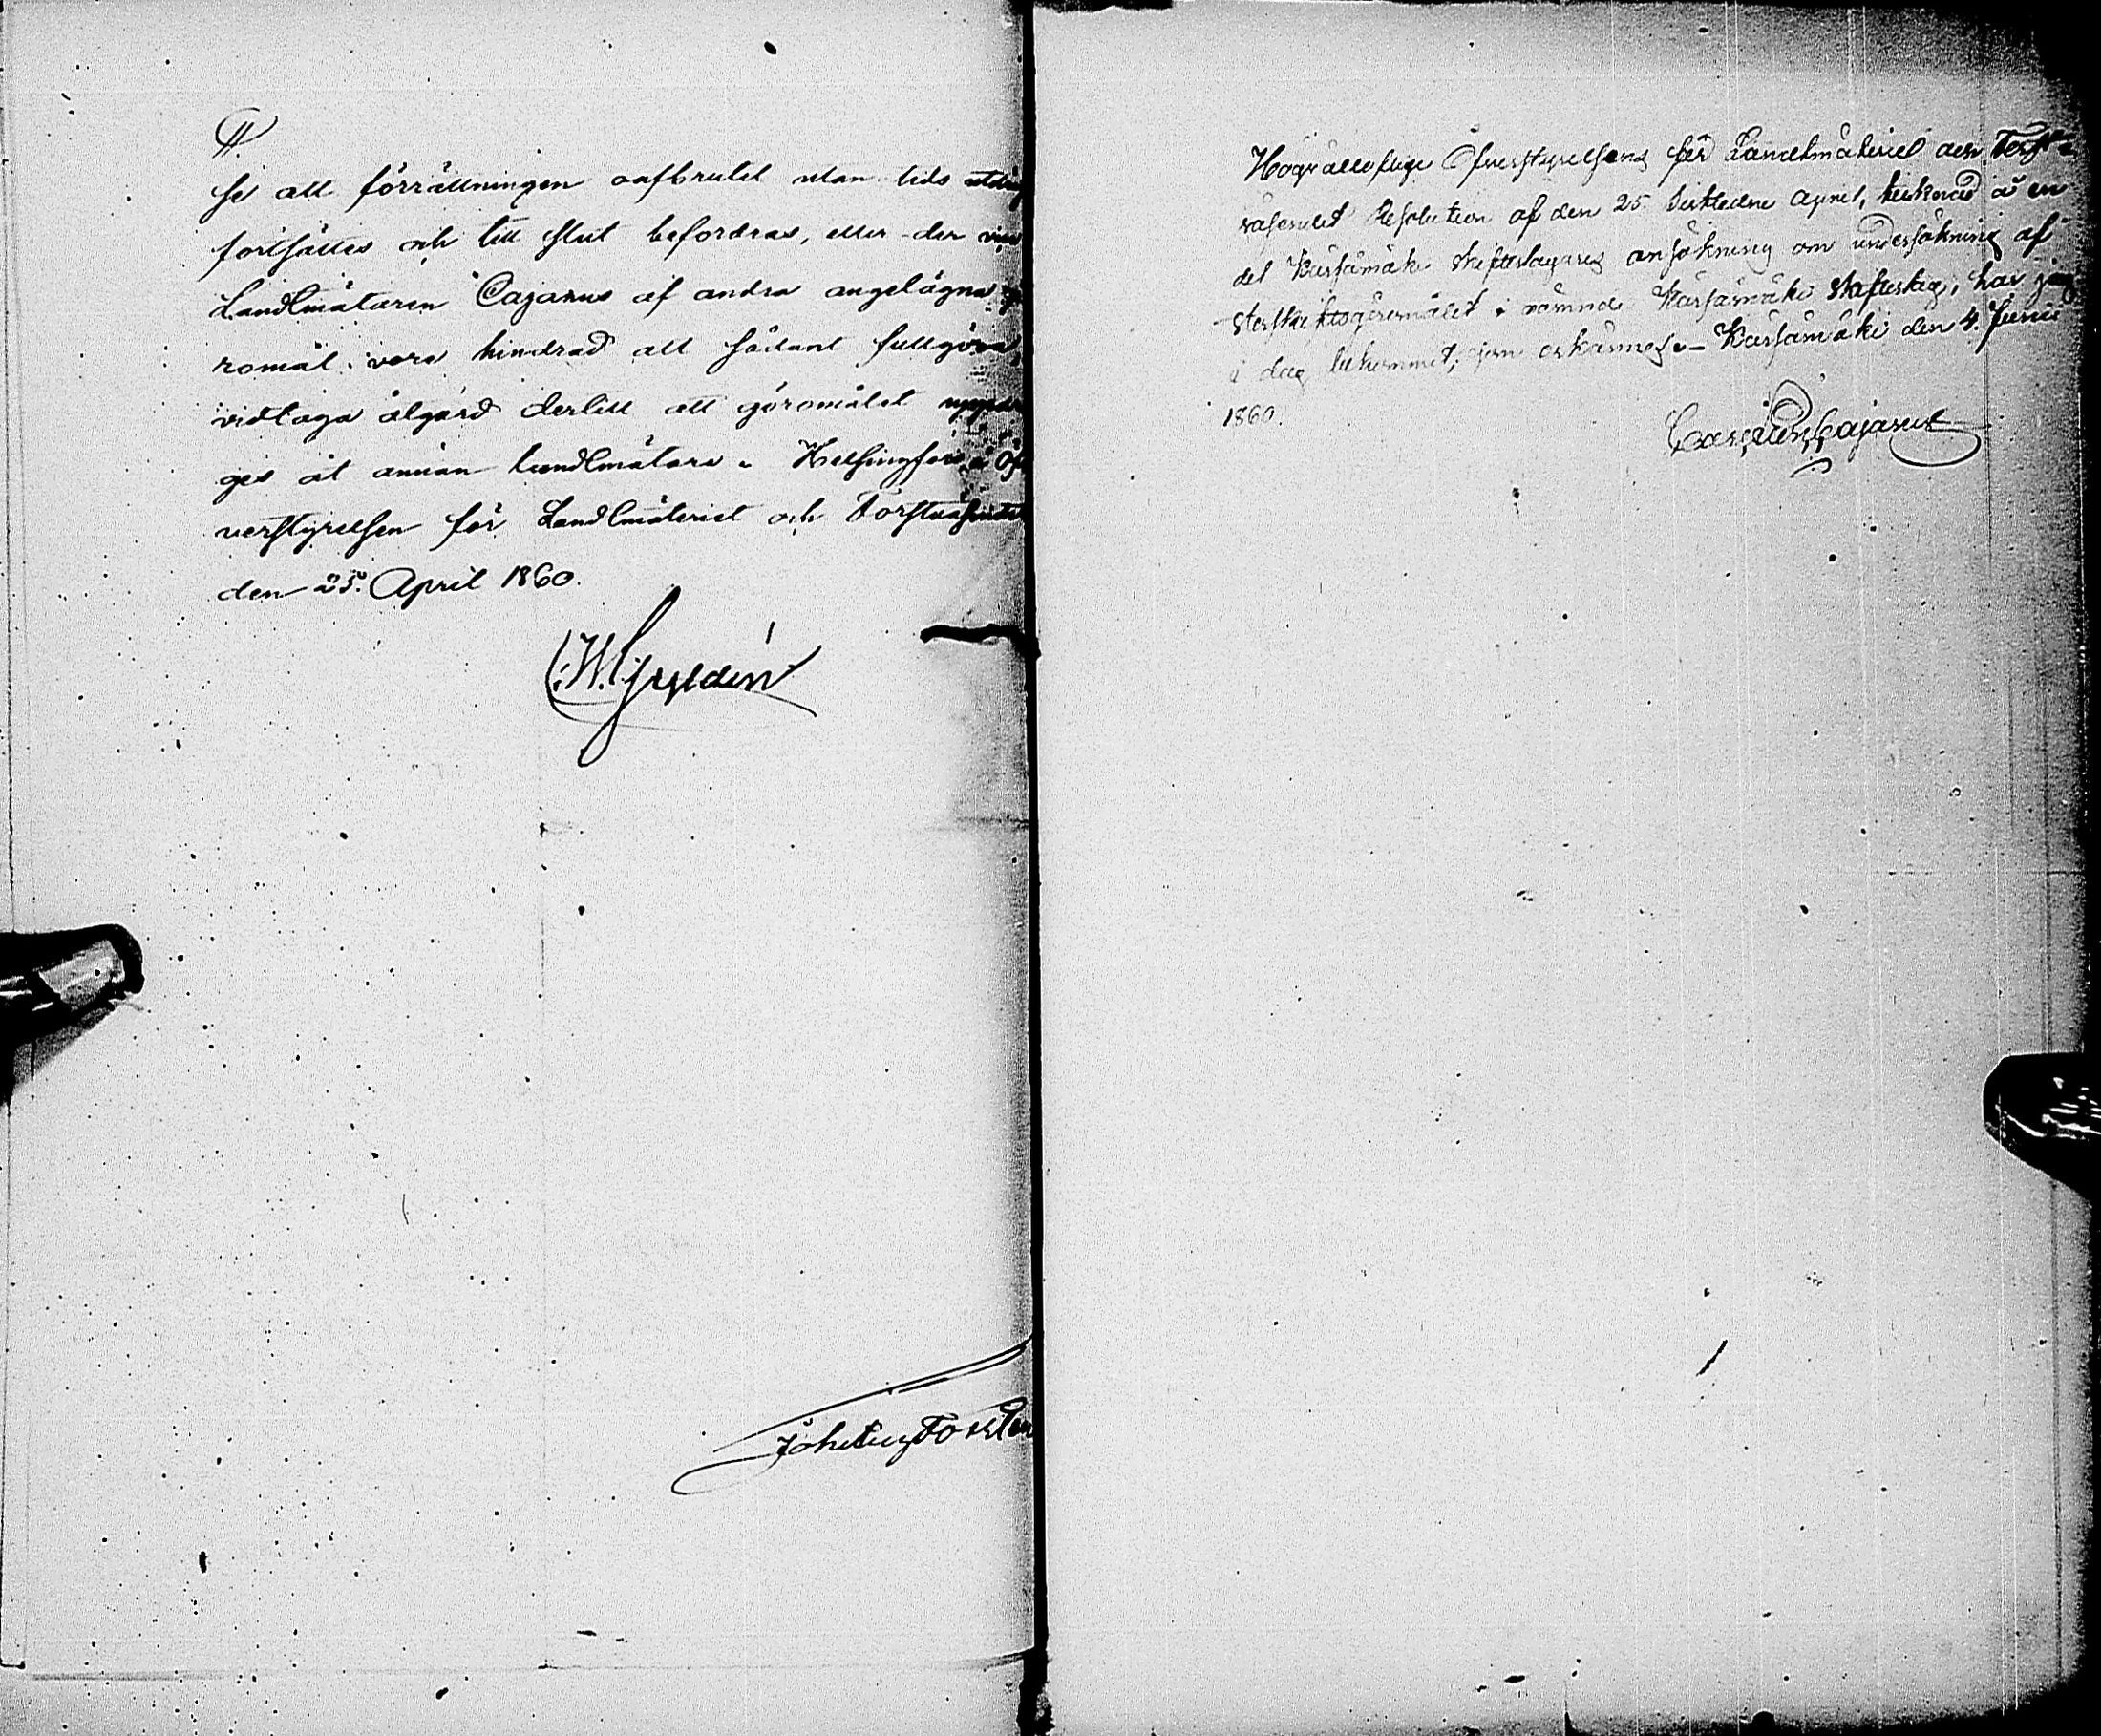 se att förrättningen oafbrutet utan tids utdrägt
fortsättes och till slut befordras, eller der
Landtmätaren Cajanus af andra angelägna
romål vore hindrad att sådant fullgöra,
vidtaga åtgärd dertill att göromålet uppdra
ges åt annan Landtmätare. Helsingfors, å Öf
verstyrelsen för Landtmäteriet och Forstväsendet
den 25. April 1860.
C. W. Gyldén
Högvällofliga Öfverstyrelsens för Landtmäteriet och Forst
väsendet Resolution af den 25 sistledne April, tecknad å en
del Kärsämäki skifteslagares ansökning om undersökning af
storskiftsgöromålet i nämnde Kärsämäki skifteslag, har jag
i dag bekommit; som erkännes. Kärsämäki den 4. Junii
1860.
Cajanus